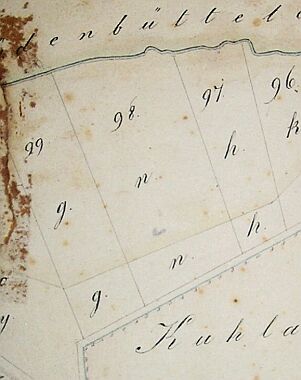 denbüttel
99 98. 97 96.
g. n h. k
g. n. h.
y
Kuhla